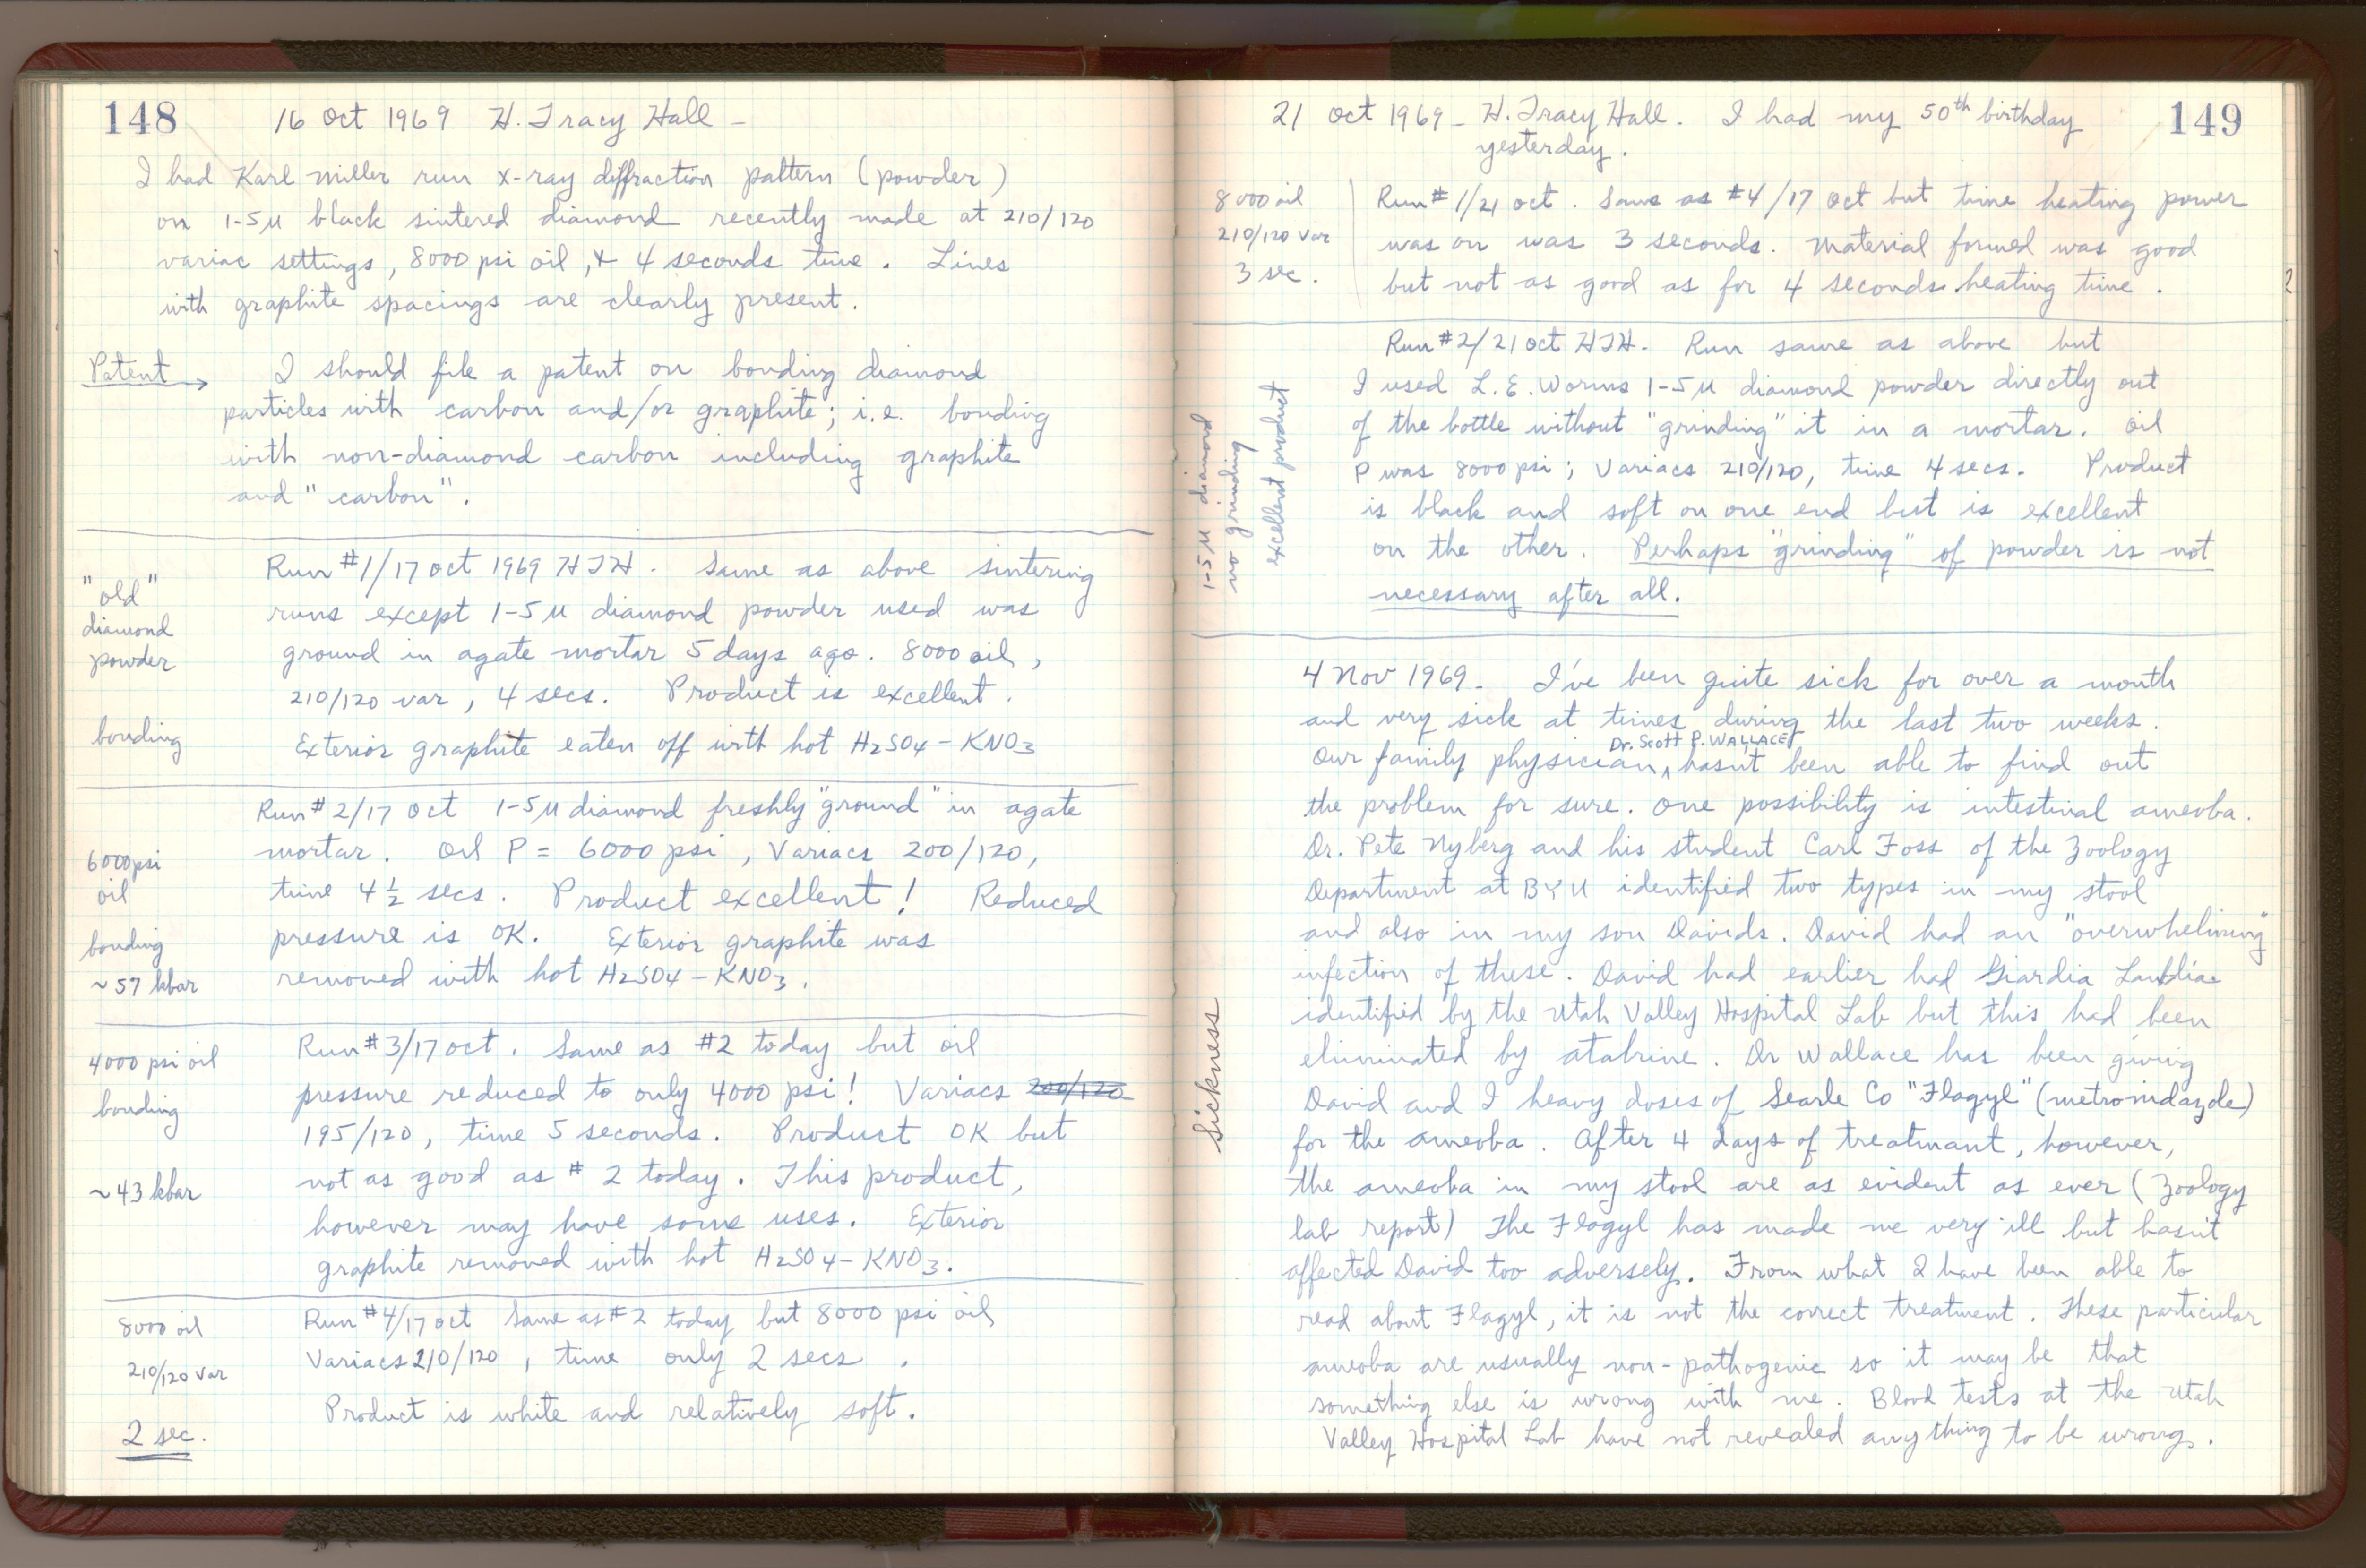 148
16 Oct 1969 H. Tracy Hall –
I had Karl Miller run x-ray diffraction pattern (powder)
on 1-5µ black sintered diamond recently made at 210/120
variac settings, 8000 psi oil, & 4 seconds time. Lines
with graphite spacings are clearly present.
Patent →
I should file a patent on bonding diamond
particles with carbon and/or graphite; i.e. bonding
with non-diamond carbon including graphite
and "carbon".
"old"
diamond
powder
bonding
Run #1/17 Oct 1969 HTH. Same as above sintering
runs except 1-5µ diamond powder used was
ground in agate mortar 5 days ago. 8000 oil,
210/120 var, 4 secs. Product is excellent.
Exterior graphite eaten off with hot H2SO4 – KNO3
6000 psi
oil
bonding
~57 kbar
Run #2/17 Oct 1-5µ diamond freshly "ground" in agate
mortar. Oil P = 6000 psi, Variacs 200/120,
time 4 1/2 secs. Product excellent! Reduced
pressure is OK. Exterior graphite was
removed with hot H2SO4 – KNO3.
4000 psi oil
bonding
~43 kbar
Run #3/17 Oct. Same as #2 today but oil
pressure reduced to only 4000 psi! Variacs 200/120
195/120, time 5 seconds. Product OK but
not as good as # 2 today. This product,
however may have some uses. Exterior
graphite removed with hot H2SO4 – KNO3.
8000 oil
210/120 Var
2 sec.
Run #4/17 Oct Same as #2 today but 8000 psi oil
Variacs 210/120, time only 2 secs.
Product is white and relatively soft.
149
21 Oct 1969 – H. Tracy Hall. I had my 50th birthday
yesterday.
8000 oil
210/120 Var
3 sec.
Run #1/21 Oct. Same as #4/17 Oct but time heating power
was on was 3 seconds. Material formed was good
but not as good as for 4 seconds heating time.
1-5µ diamond
no grinding
excellent product
Run #2/21 Oct HTH. Run same as above but
I used L.E. Worms 1-5µ diamond powder directly out
of the bottle without "grinding" it in a mortar. Oil
P was 8000 psi; Variacs 210/120, time 4 secs. Product
is black and soft on one end but is excellent
on the other. Perhaps "grinding" of powder is not
necessary after all.
Sickness
4 Nov 1969 – I've been quite sick for over a month
and very sick at times during the last two weeks.
Dr. Scott P. WALLACE
Our family physician, ^ hasn't been able to find out
the problem for sure. One possibility is intestinal ameoba.
Dr. Pete Nyberg and his student Carl Foss of the Zoology
Department at BYU identified two types in my stool
and also in my son Davids. David had an "overwhelming"
infection of these. David had earlier had Giardia
identified by the Utah Valley Hospital Lab but this had been
eliminated by atabrine. Dr Wallace has been giving
David and I heavy doses of Searle Co "Flagyl" (metronidazole)
for the ameoba. After 4 days of treatmant, however,
the ameoba in my stool are as evident as ever (Zoology
lab report) The Flagyl has made me very ill but hasn't
affected David too adversely. From what I have been able to
read about Flagyl, it is not the correct treatment. These particular
ameoba are usually non-pathogenic so it may be that
something else is wrong with me. Blood tests at the Utah
Valley Hospital Lab have not revealed anything to be wrong.